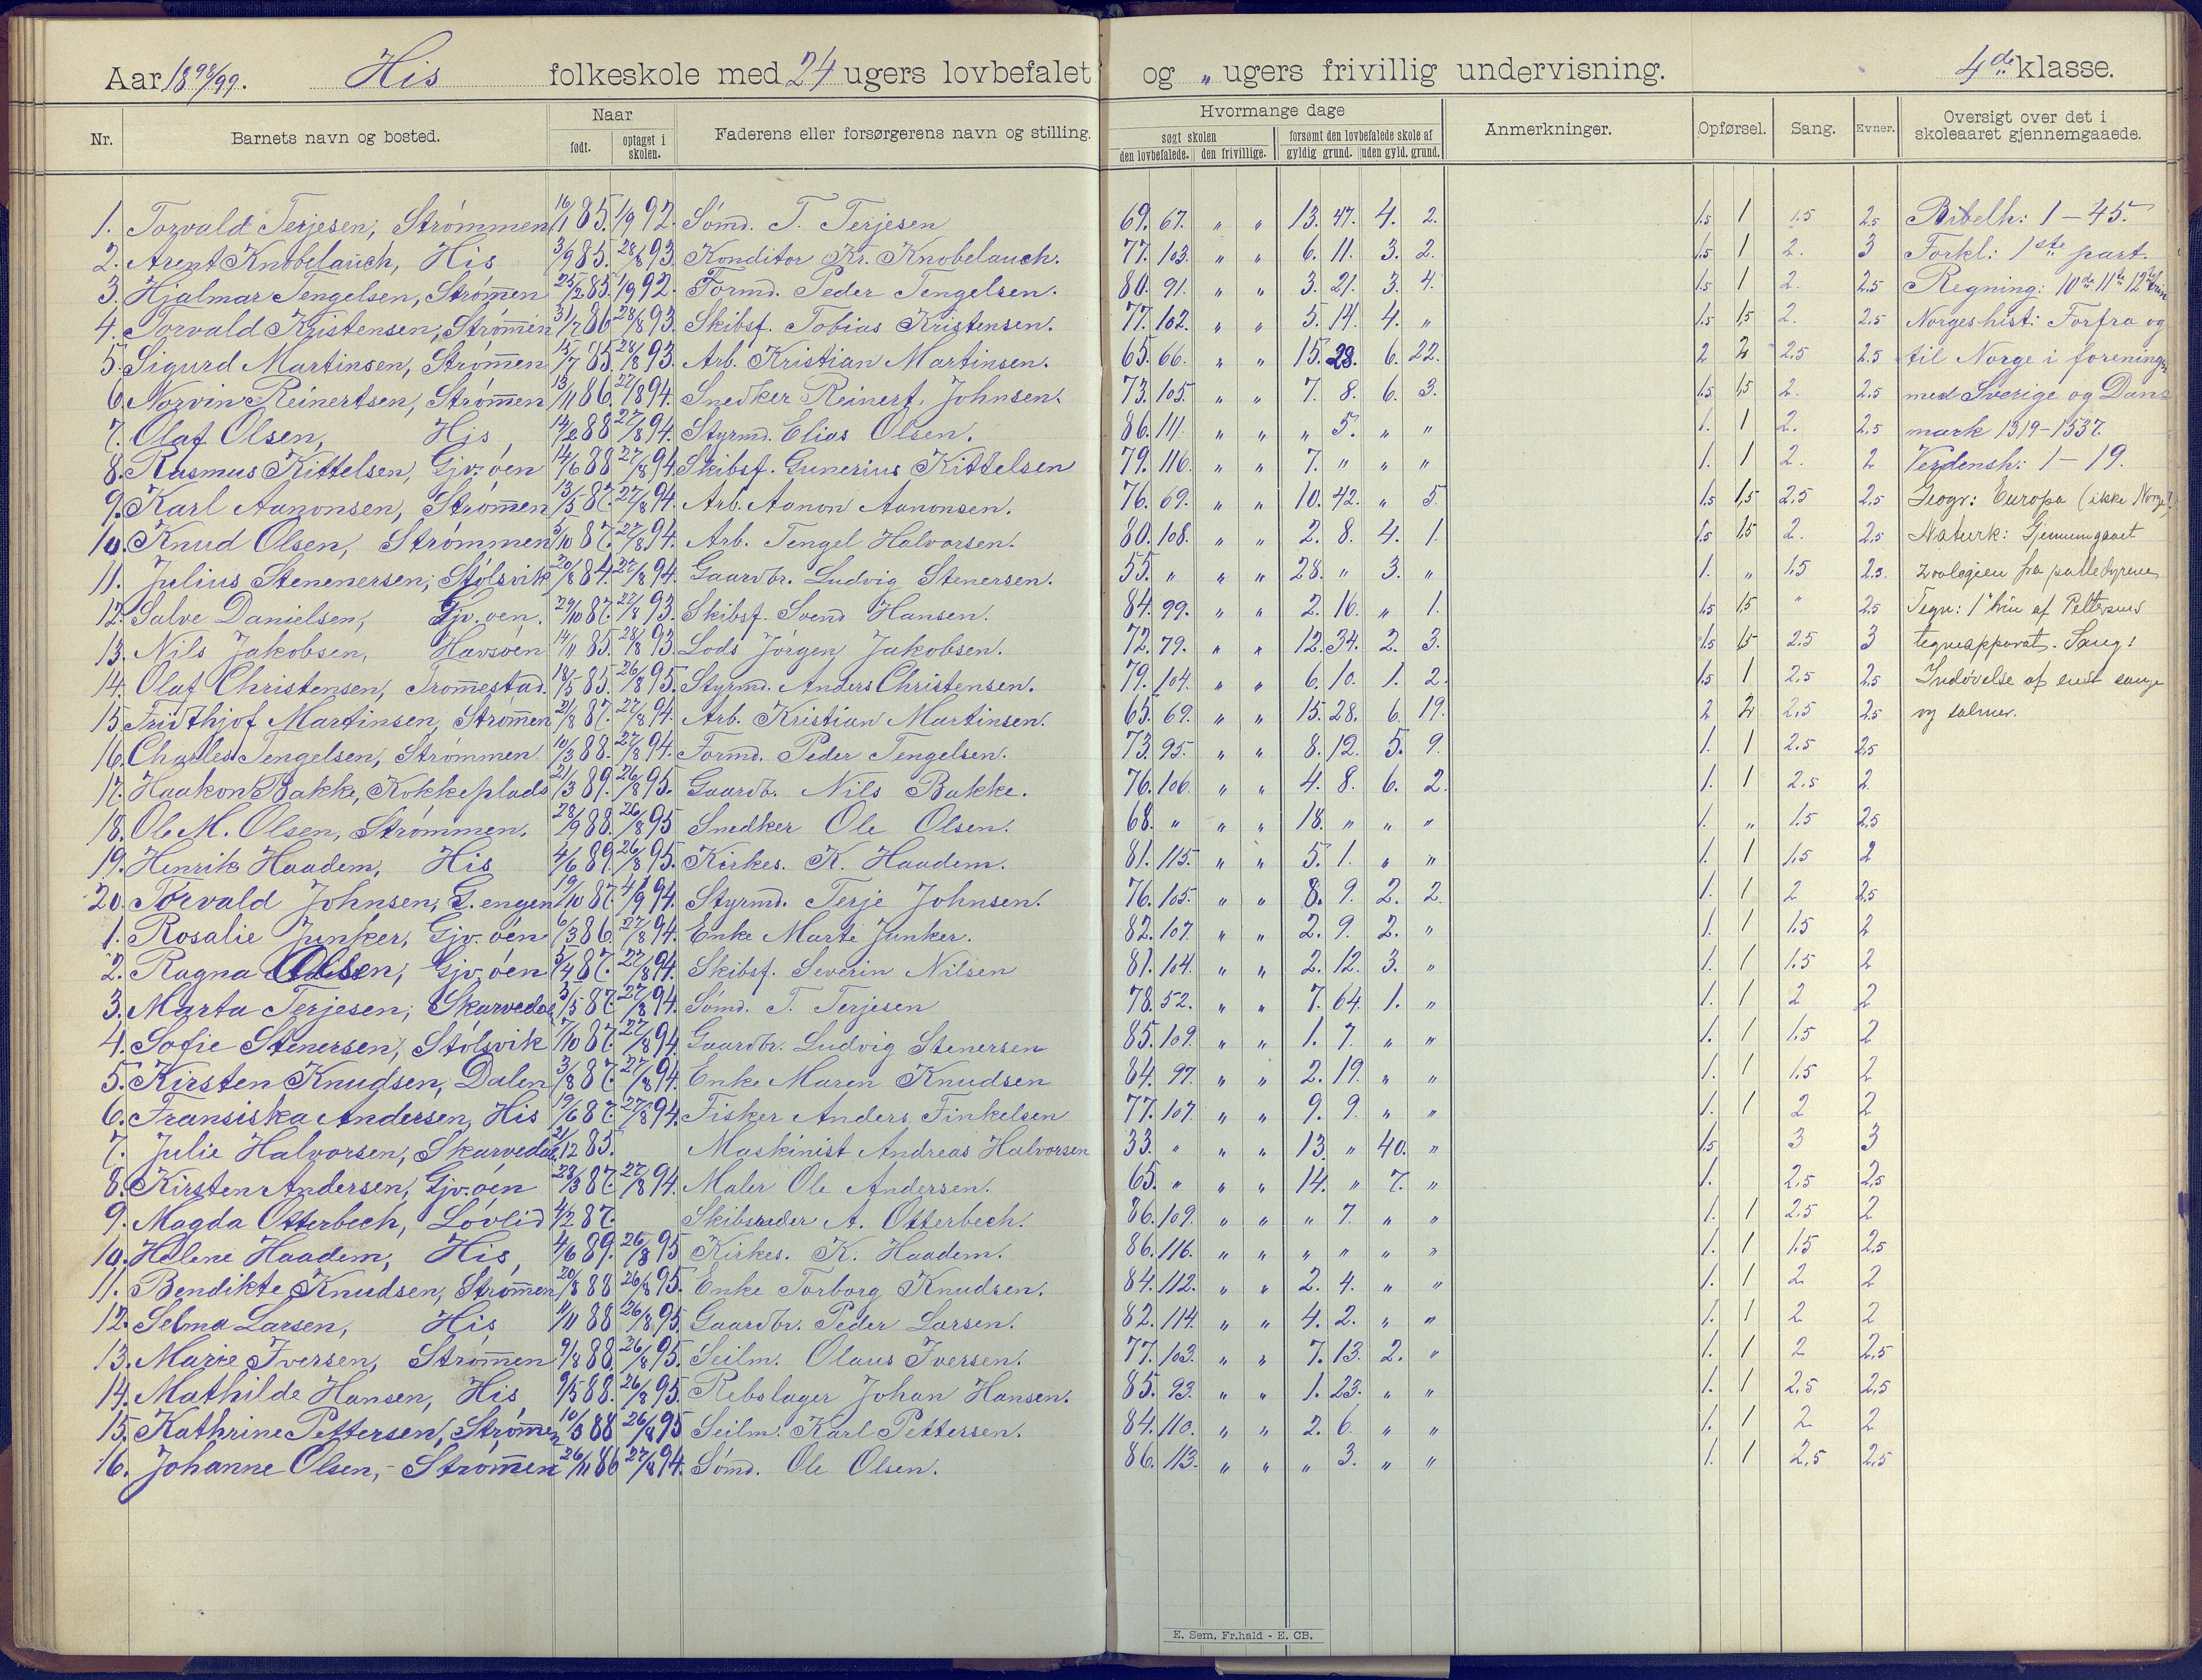 Aar 1898/99. His folkeskole med 24 ugers lovbefalet og „ ugers frivillig undervisning. 4de klasse.
Nr. Barnets navn og bosted. Naar født. optaget i skolen. Faderens eller forsørgerens navn og stilling. Hvormange dage søgt skolen den lovbefalede. den frivillige. forsømt den lovbefalede skole af gyldig grund. uden gyld. grund. Anmerkninger. Opførsel. Sang. Evner. Oversigt over det i skoleaaret gjennemgaaede.
1. Torvald Terjesen, Strømmen 16/1 85. 1/9 92. Sømd. T. Terjesen 69. 67. „ „ 13. 47. 4. 2. 1.5 1 1.5 2.5 Bibelh: 1 – 45.
2. Arent Knobelauch, His 3/9 85. 28/8 93. Konditor Kr. Knobelauch. 77. 103. „ „ 6. 11. 3. 2. 1.5 1 2. 3 Forkl: 1ste part.
3. Hjalmar Tengelsen, Strømmen 25/2 85. 1/9 92. Formd. Peder Tengelsen. 80. 91. „ „ 3. 21. 3. 4. 1.5 1 2. 2.5 Regning: 10de 11te 12te trin
4. Torvald Kristensen, Strømmen 31/7 86 28/8 93. Skibsf. Tobias Kristensen. 77. 102. „ „ 5. 14. 4. „ 1.5 1.5 2. 2.5 Norgeshist: Forfra og
5. Sigurd Martinsen, Strømmen 15/7 85 28/8 93. Arb. Kristian Martinsen. 65. 66. „ „ 15. 28. 6. 22. 2 2 2.5 2.5 til Norge i forening
6. Norvin Reinertsen, Strømmen 13/11 86. 27/8 94. Snedker Reinert Johnsen. 73. 105. „ „ 7. 8. 6. 3. 1.5 1.5 2. 2.5 med Sverige og Dan-
7. Olaf Olsen, His 14/2 88 27/8 94. Styrmd. Elias Olsen. 86. 111. „ „ „ 5. „ „ 1. 1 2. 2.5 mark 1319–1537.
8. Rasmus Kittelsen, Gjv. øen 14/6 88 27/8 94 Skibsf. Gunerius Kittelsen 79. 116. „ „ 7. „ „ „ 1. 1 2. 2 Verdensh: 1 – 19.
9. Karl Aanonsen, Strømmen 13/5 87. 27/8 94. Arb. Aanon Aanonsen. 76. 69. „ „ 10. 42. „ 5. 1.5 1.5 2.5 2.5 Geogr: Europa (ikke Norge).
10. Knud Olsen, Strømmen 5/10 87. 27/8 94. Arb. Tengel Halvorsen. 80. 108. „ „ 2. 8. 4. 1. 1.5 1.5 2. 2.5 Naturk: Gjennemgaaet
11. Julius Stenenersen, Stølsvik 20/8 84. 27/8 94. Gaardbr. Ludvig Stenersen. 55. „ „ „ 28. „ 3. „ 1. „ 1.5 2.5 zoologien fra pattedyrene
12. Salve Danielsen, Gjv. øen. 29/10 87. 27/8 93. Skibsf. Svend Hansen. 84. 99. „ „ 2. 16. „ 1. 1.5 1.5 „ 2.5 Tegn: 1 trin af Pettersens
13. Nils Jakobsen, Havsøen 14/11 85. 28/8 93. Lods Jørgen Jakobsen. 72. 79. „ „ 12. 34. 2. 3. 1.5 1.5 2.5 3 tegneapparat. Sang:
14. Olaf Christensen, Tromestad. 18/5 85. 26/8 95. Styrmd. Anders Christensen. 79. 104. „ „ 6. 10. 1. 2. 1.5 1 2.5 2.5 Indøvelse af enst sange
15. Fridthjof Martinsen, Strømmen 21/8 87. 27/8 94. Arb. Kristian Martinsen. 65. 69. „ „ 15. 28. 6. 19. 2 2 2.5 2.5 og salmer.
16. Charles Tengelsen, Strømmen 10/3 88. 27/8 94. Formd. Peder Tengelsen. 73. 95. „ „ 8. 12. 5. 9. 1. 1 2.5 2.5
17. Haakon Bakke, Kokkeplads 21/3 89. 26/8 95. Gaardb. Nils Bakke. 76. 106. „ „ 4. 8. 6. 2. 1. 1 2.5 2
18. Ole M. Olsen, Strømmen. 28/9 88. 26/8 95 Snedker Ole Olsen. 68. „ „ „ 18. „ „ „ 1. „ 1.5 2.5
19. Henrik Haadem, His 4/6 89. 26/8 95. Kirkes. K. Haadem. 81. 115. „ „ 5. 1. „ „ 1. 1 1.5 2
20. Torvald Johnsen, G. engen 19/10 87. 4/9 94. Styrmd. Terje Johnsen. 76. 105. „ „ 8. 9. 2. 2. 1. 1 2 2.5
1. Rosalie Junker, Gjv. øen 6/3 86. 27/8 94. Enke Marte Junker. 82. 107. „ „ 2. 9. 2. „ 1. 1 1.5 2
2. Ragna Olsen, Gjv. øen 5/4 87. 27/8 94. Skibsf. Severin Nilsen 81. 104. „ „ 2. 12. 3. „ 1. 1 1.5 2
3. Marta Terjesen, Skarvedal 3/5 87. 27/8 94. Sømd. T. Terjesen 78. 52. „ „ 7. 64. 1. „ 1. 1 2 2
4. Sofie Stenersen, Stølsvik 7/10 87. 27/8 94. Gaardbr. Ludvig Stenersen 85. 109. „ „ 1. 7. „ „ 1. 1 1.5 2
5. Kirsten Knudsen, Dalen 3/8 87. 27/8 94. Enke Maren Knudsen 84. 97. „ „ 2. 19. „ „ 1. 1 1.5 2
6. Fransiska Andersen, His 19/6 87. 27/8 94. Fisker Anders Finkelsen 77. 107. „ „ 9. 9. „ „ 1. 1 2 2
7. Julie Halvorsen, Skarvedal 21/12 85. Maskinist Andreas Halvorsen 33. „ „ „ 13. „ 40. „ 1.5 3 3
8. Kirsten Andersen, Gjv. øen 28/3 87. 27/8 94. Maler Ole Andersen. 65. „ „ „ 14. „ 7. „ 1. 2.5 2.5
9. Magda Otterbech, Løvlid 4/2 87. Skibsreder A. Otterbech. 86. 109. „ „ „ 7. „ „ 1. 1 2.5 2
10. Helene Haadem, His, 4/6 89. 26/8 95 Kirkes. K. Haadem. 86. 116. „ „ „ „ „ „ 1. 1 1.5 2.5
11. Bendikte Knudsen, Strømmen 20/8 88 26/8 95. Enke Torborg Knudsen. 84. 112. „ „ 2. 4. „ „ 1. 1 2 2
12. Selma Larsen, His 11/11 88 26/8 95. Gaardbr. Peder Larsen. 82. 114. „ „ 4. 2. „ „ 1. 1 2 2
13. Marie Iversen, Strømmen 9/8 88. 26/8 95. Seilm. Olaus Iversen. 77. 103. „ „ 7. 13. 2. „ 1. 1 2 2.5
14. Mathilde Hansen, His 9/5 88. 26/8 95. Rebslager Johan Hansen. 85. 93. „ „ 1. 23. „ „ 1. 1 2.5 2.5
15. Kathrine Pettersen, Strømmen 10/3 88 26/8 95 Seilm. Karl Pettersen. 84. 110. „ „ 2. 6. „ „ 1. 1 2 2
16. Johanne Olsen, Strømmen 26/11 86 27/8 94. Sømd. Ole Olsen. 86. 113. „ „ „ 3. „ „ 1. 1 2.5 2.5
E. Sem, Fr.hald - E. CB.